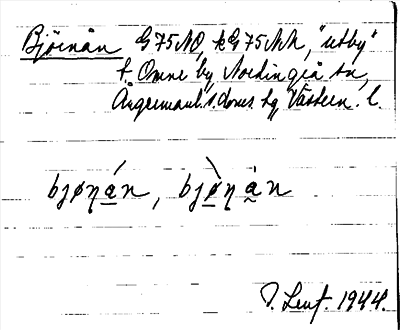 Björnån G75NO, kG75NN, "utby"
t. Omne by Nordingrå sn,
Ångermanl. s. doms hg Västern. l.
bjøṇán, bjøṇàn
P. Lenf. 1944.